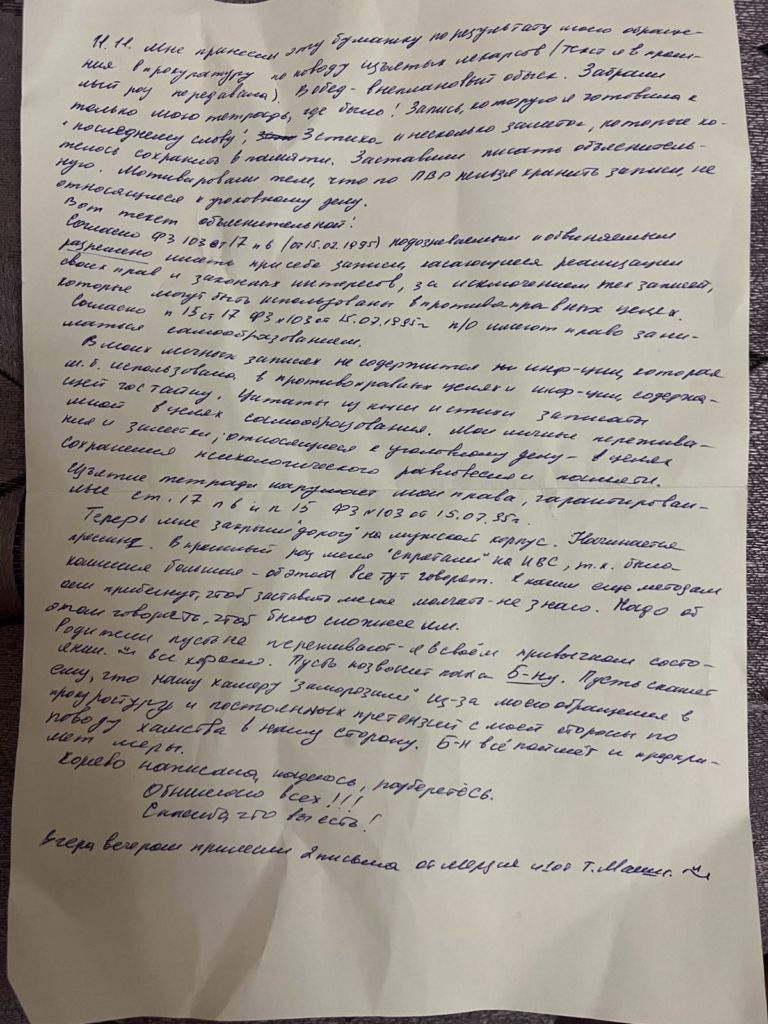 11.11. Мне принесли эту бумажку по результату моего обраще-
ния в прокуратуру по поводу изъятых лекарств (текст я в прош-
лый раз передавала). В обед - внеплановый обыск. Забрали
только мою тетрадь, где было! Запись, которую я готовила к
"последнему слову", 3 стиха и несколько заметок, которые хо-
телось сохранить в памяти. Заставили писать объяснитель-
ную. Мотивировали тем, что по ПВР нельзя хранить записи, не
относящиеся к уголовному делу.
Вот текст объяснительной:
Согласно ФЗ 103 ст 17 п 6 (от 15.07.1995) подозреваемым и обвиняемым
разрешено иметь при себе записи, касающиеся реализации
своих прав и законных интересов, за исключением тех записей,
которые могут быть использованы в противоправных целях.
Согласно п 15 ст 17 ФЗ №103 от 15.07.1995г п/о имеют право зани-
маться самообразованием.
В моих личных записях не содержится ни инф-ции, которая
м.б. использована в противоправных целях и инф-ции, содержа-
щей гостайну. Цитаты из книг и стихи записаты
мной в целях самообразования. Мои личные пережива-
ния и заметки, относящиеся к уголовному делу - в целях
сохранения психологического равновесия и памяти.
Изъятие тетради нарушает мои права, гарантирован-
ные ст. 17 п 6 и п 15 ФЗ №103 от 15.07.95г.
Теперь мне закрыт "дорогу" на мужской корпус. Начинается
прессинг. В прошлый раз меня "спрятали" на ИВС, т.к. была
комиссия большая - об этом все тут говорят. К каким еще методам
они прибегнут, чтоб заставить меня молчать - не знаю. Надо об
этом говорить, чтоб было сложнее им.
Родители пусть не переживают - я в своём привычном состо-
янии. Всё хорошо. Пусть позвонит Б-ну. Пусть скажет
ему, что нашу камеру "заморозили" из-за моего обращения в
прокуратуру и постоянных претензий с моей стороны по
поводу хамства в нашу сторону. Б-н всё поймёт и предпри-
мет меры.
Коряво написала, надеюсь, разберётесь.
Обнимаю всех!!!
Спасибо, что вы есть!
Вчера вечером принесли 2 письма от и 1 от Т. Маши.